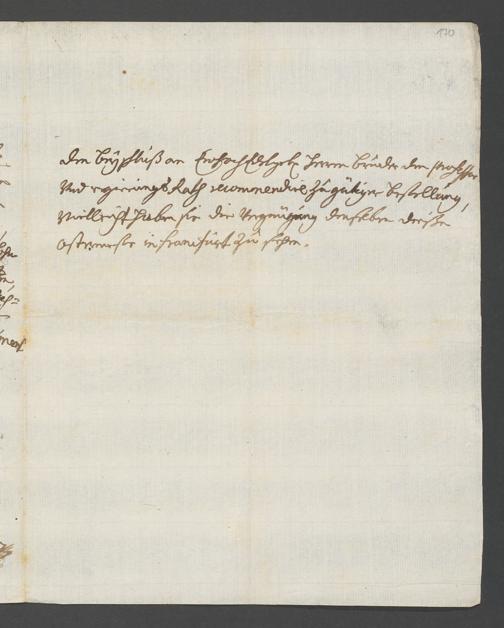 170
den beyschluß an Ewhochedelgeb. Herrn bruder den professor
Und regierungs Rath recommendire zu gütiger bestellung,
vielleicht haben sie die Vergnügung denselben diese
ostermeße in franckfurt zu sehen.